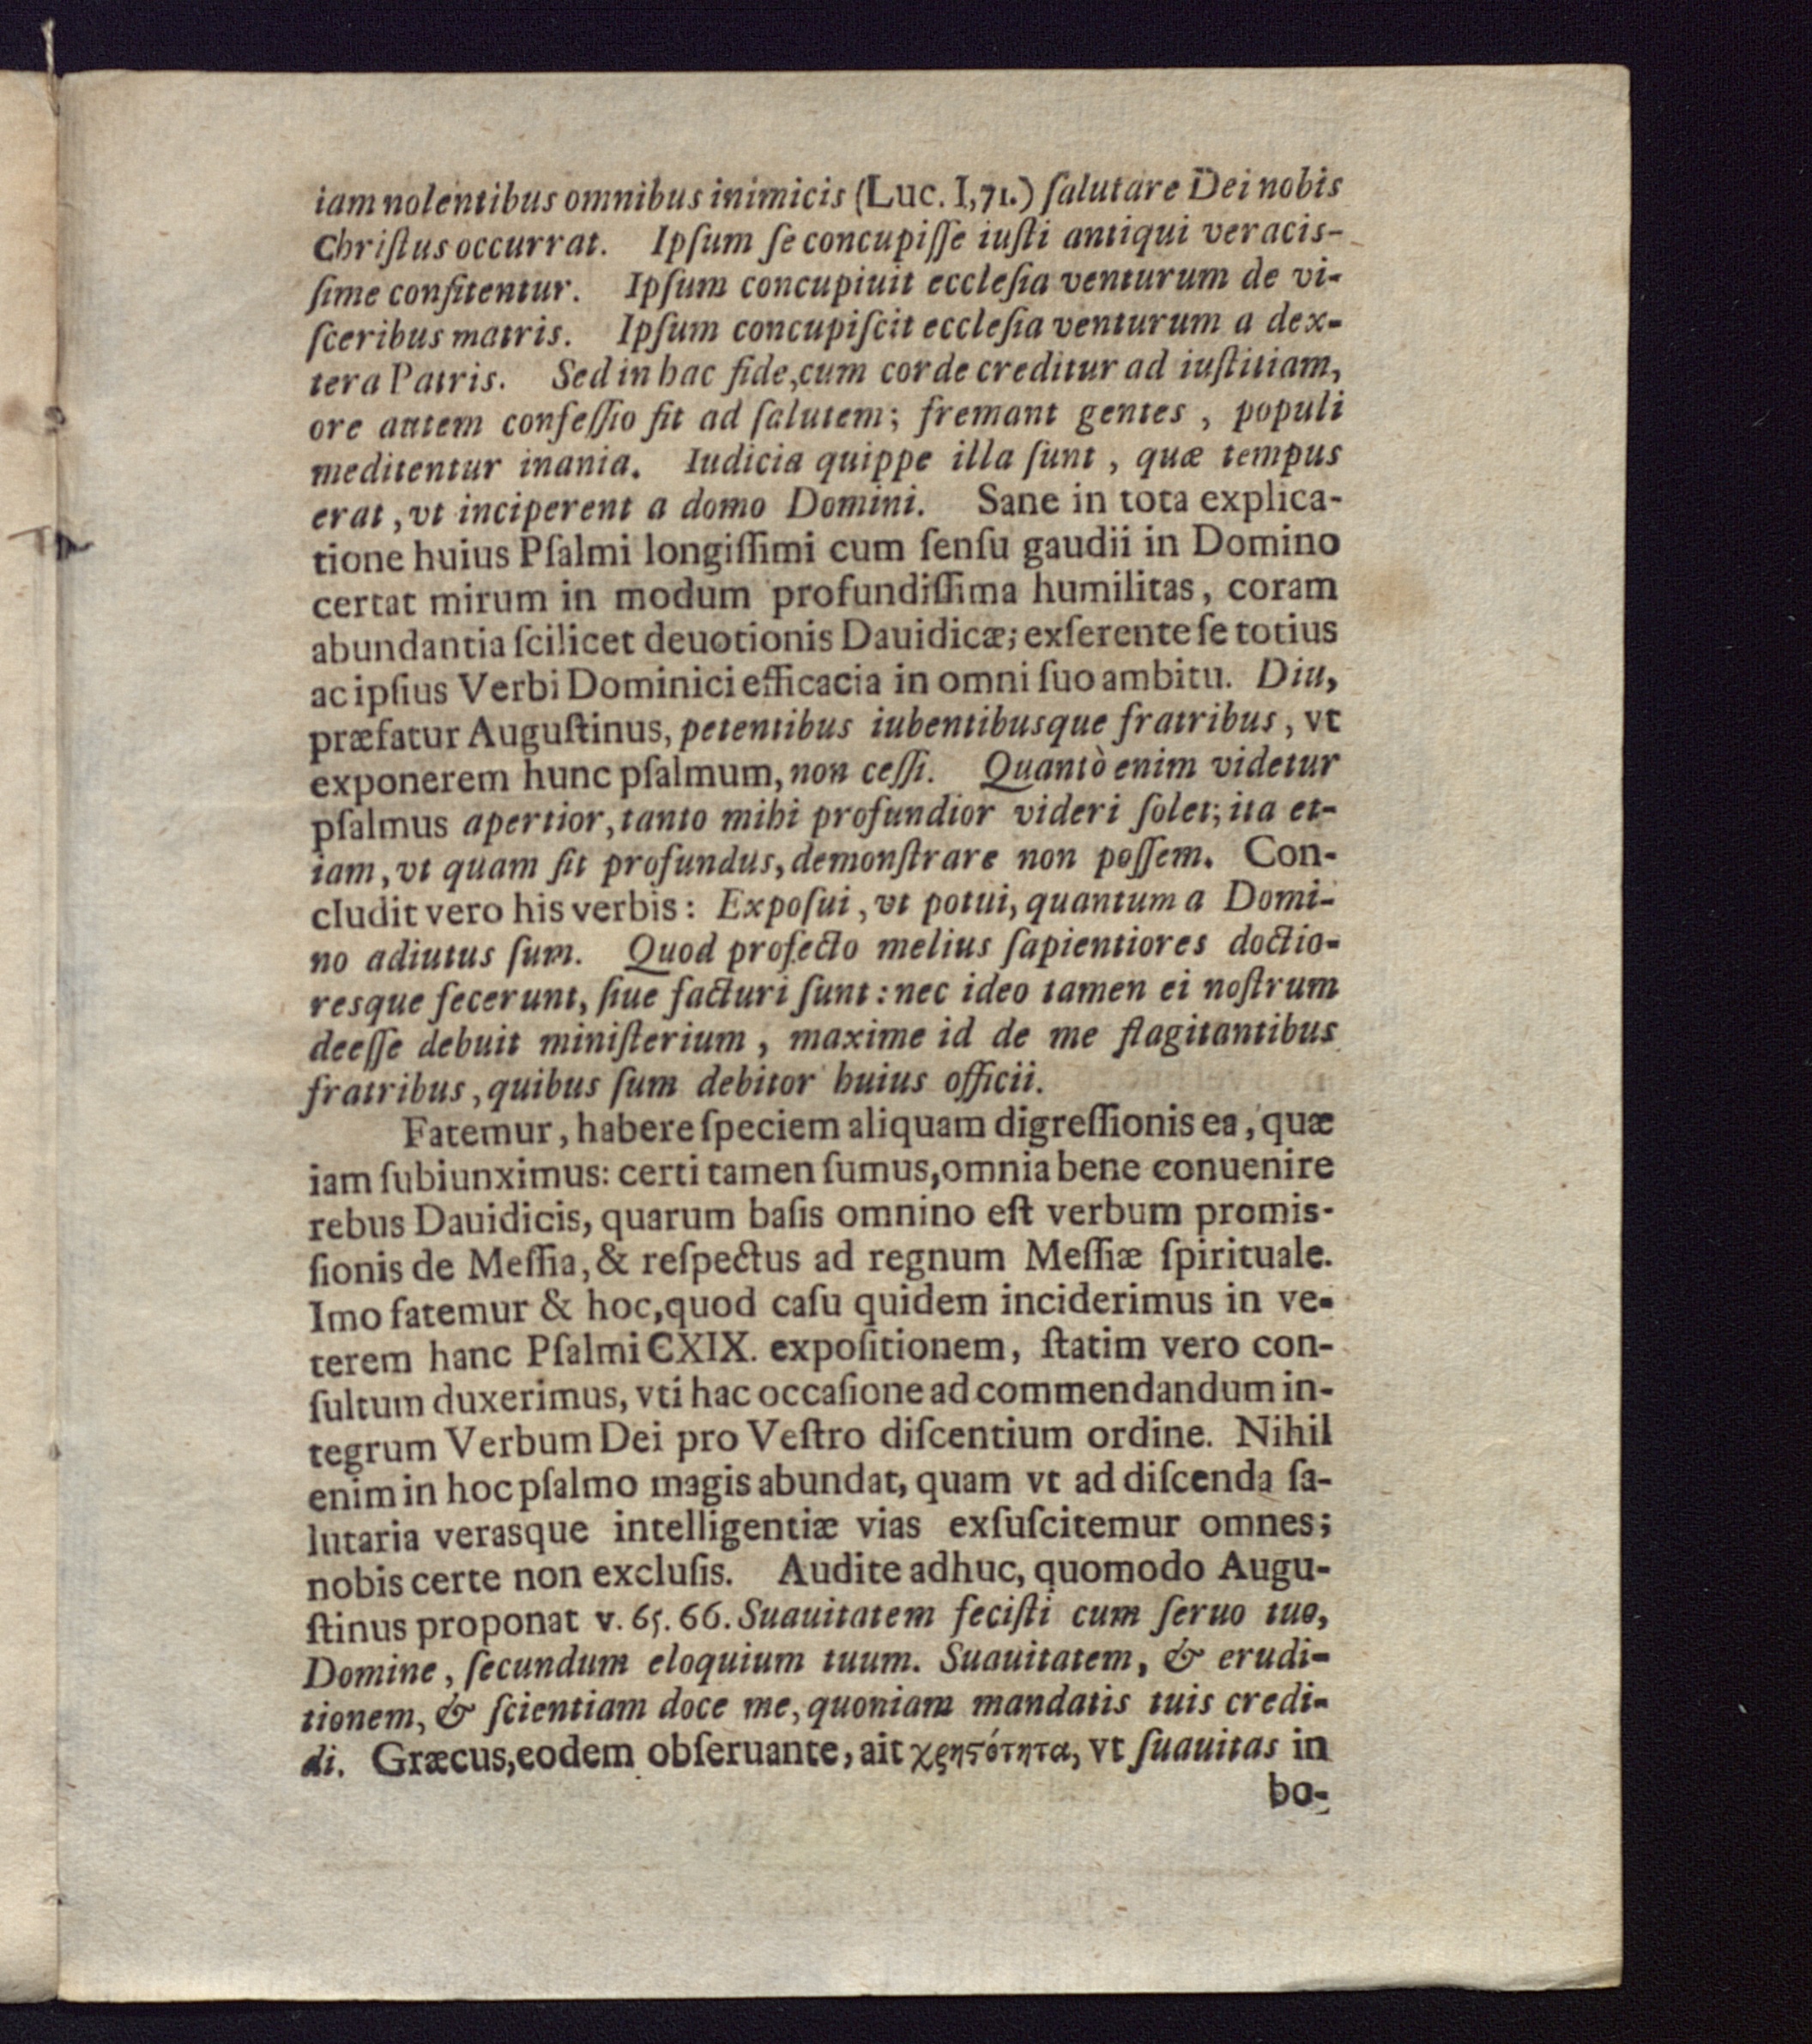 iam nolentibus omnibus inimicis (Luc. I, 71.) ſalutare Dei nobis
Chriſtus occurrat. Ipſum ſe concupiſſe iuſti antiqui veracis-
ſime confitentur. Ipſum concupiuit eccleſia venturum de vi-
ſceribus matris. Ipſum concupiſcit eccleſia venturum a dex-
tera Patris. Sed in hac fide, cum corde creditur ad iuſtitiam,
ore autem confeſſio fit ad ſalutem; fremant gentes, populi
meditentur inania. Iudicia quippe illa ſunt, quæ tempus
erat, vt inciperent a domo Domini. Sane in tota explica-
tione huius Pſalmi longiſſimi cum ſenſu gaudii in Domino
certat mirum in modum profundiſſima humilitas, coram
abundantia ſcilicet deuotionis Dauidicæ; exſerente ſe totius
ac ipſius Verbi Dominici efficacia in omni ſuo ambitu. Diu,
præfatur Auguſtinus, petentibus iubentibusque fratribus, vt
exponerem hunc pſalmum, non ceſſi. Quantò enim videtur
pſalmus apertior, tanto mihi profundior videri ſolet; ita et-
iam, vt quam ſit profundus, demonſtrare non poſſem. Con-
cludit vero his verbis: Expoſui, vt potui, quantum a Domi-
no adiutus ſum. Quod profecto melius ſapientiores doctio-
resque fecerunt, ſiue facturi ſunt: nec ideo tamen ei noſtrum
deeſſe debuit miniſterium, maxime id de me flagitantibus
fratribus, quibus ſum debitor huius officii.
Fatemur, habere ſpeciem aliquam digreſſionis ea, quæ
iam ſubiunximus: certi tamen ſumus, omnia bene conuenire
rebus Dauidicis, quarum baſis omnino eſt verbum promis-
ſionis de Meſſia, & reſpectus ad regnum Meſſiæ ſpirituale.
Imo fatemur & hoc, quod caſu quidem inciderimus in ve-
terem hanc Pſalmi CXIX. expoſitionem, ſtatim vero con-
ſultum duxerimus, vti hac occaſione ad commendandum in-
tegrum Verbum Dei pro Veſtro diſcentium ordine. Nihil
enim in hoc pſalmo magis abundat, quam vt ad diſcenda ſa-
lutaria verasque intelligentiæ vias exſuſcitemur omnes;
nobis certe non excluſis. Audite adhuc, quomodo Augu-
ſtinus proponat v. 65. 66. Suauitatem feciſti cum ſeruo tuo,
Domine, ſecundum eloquium tuum. Suauitatem, & erudi-
tionem, & ſcientiam doce me, quoniam mandatis tuis credi-
di. Græcus, eodem obſeruante, ait χρηϛότητα, vt ſuauitas in
bo-